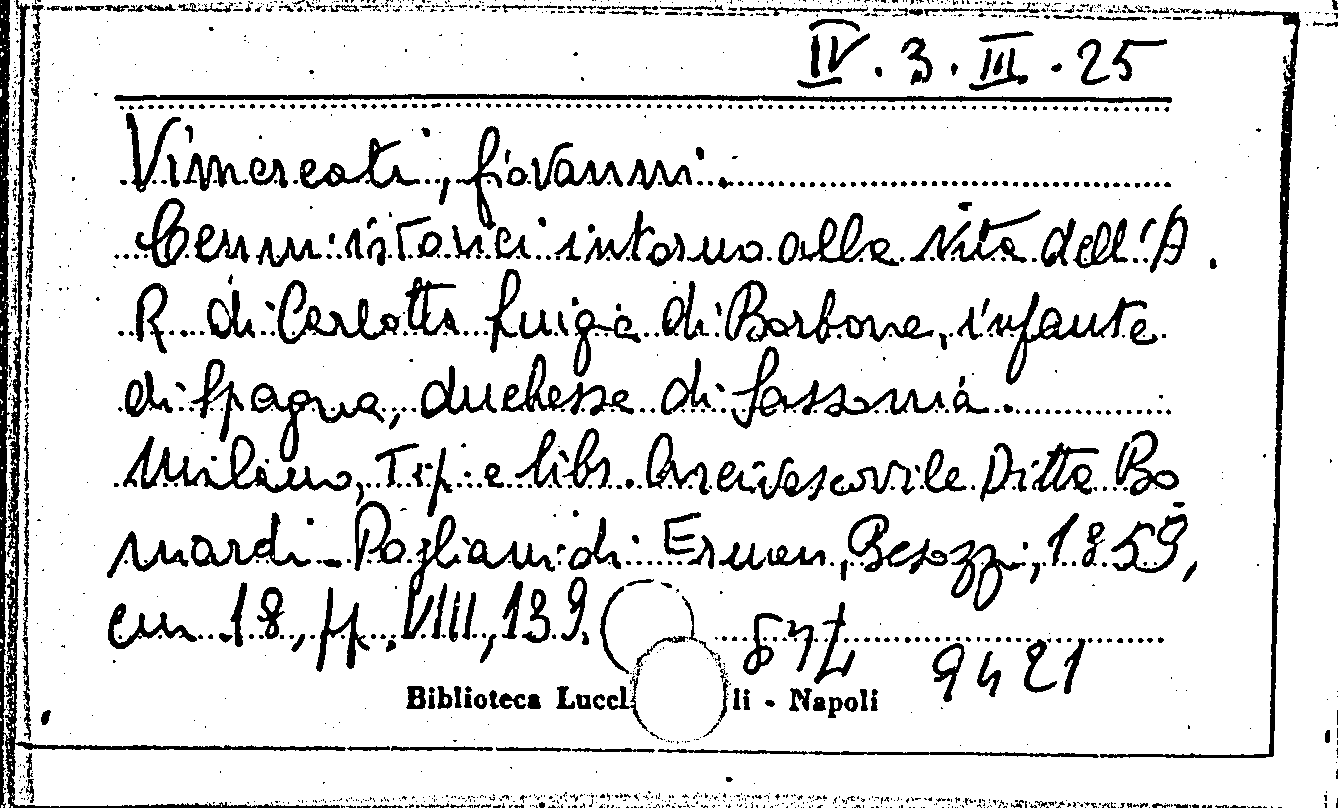 IV. 3. III. 25
Vimercati, Giovanni.
Cenni istorici intorno alla vita dell'A.
R. di Carlotta Luigia di Borbone, infanta
di Spagna, duchessa di Sassonia.
Milano, Tip. e libr. Arcivescovile Ditta Bo
nardi-Pogliani di Ermen, Besozzi, 1859,
cm 18, pp. VIII, 139.
9421
Biblioteca Lucc li - Napoli